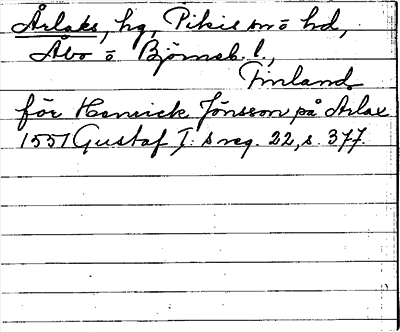 Årlaks, hg, Pikis sn o hd,
Åbo o Björneb. l.,
Finland
för Henrick Jönsson på Arlax
1551 Gustaf I:s reg. 22, s. 377.